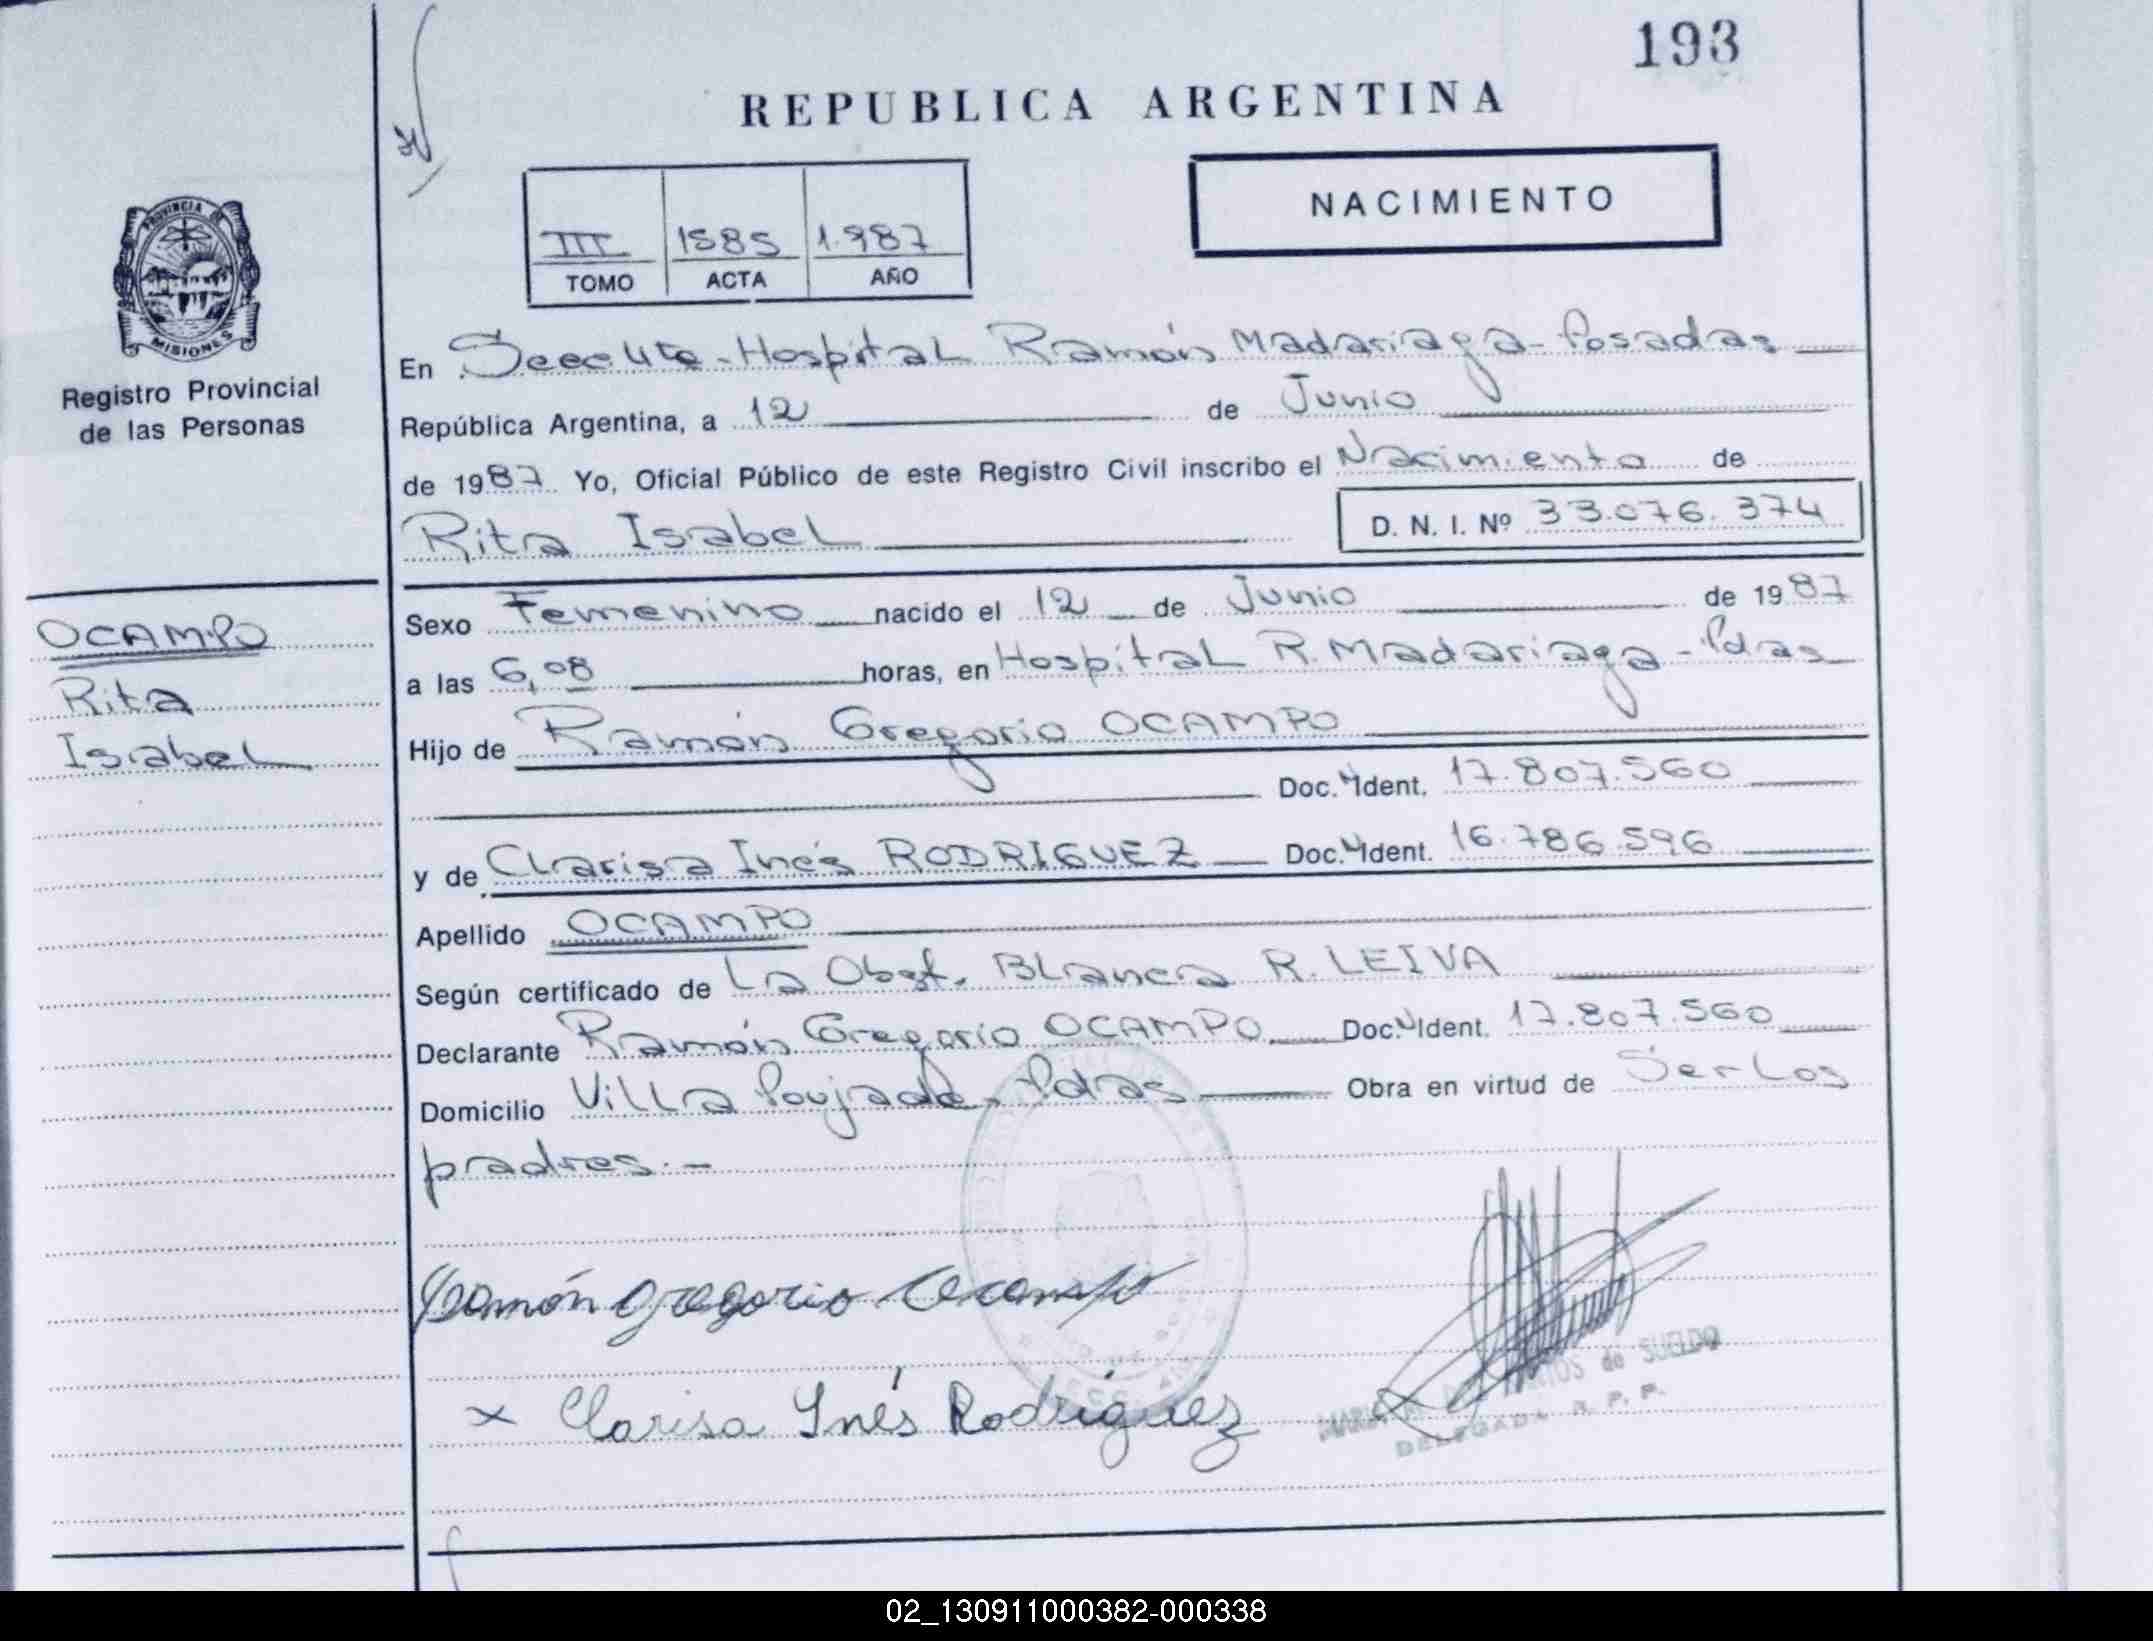 193
REPUBLICA ARGENTINA
NACIMIENTO
III 1585 1.987
TOMO ACTA AÑO
PROVINCIA
MISIONES
Registro Provincial
de las Personas
OCAMPO
Rita
Isabel
En Hospital Ramón Madariaga - Posadas
República Argentina, a 12 de Junio
de 1987 Yo, Oficial Público de este Registro Civil inscribo el Nacimiento de
Rita Isabel D. N. I. Nº 33.076.374
Sexo Femenino nacido el 12 de Junio de 1987
a las 6,08 horas, en Hospital R. Madariaga - Pdas
Hijo de Ramón Gregorio OCAMPO
Doc. Ident. 17.807.560
y de Clarisa Inés RODRIGUEZ Doc. Ident. 16.786.596
Apellido OCAMPO
Según certificado de La Obst. Blanca R. LEIVA
Declarante Ramón Gregorio OCAMPO Doc. Ident. 17.807.560
Domicilio Villa Poujade - Pdas Obra en virtud de Ser Los
padres. -
Ramón Gregorio Ocampo
x Clarisa Inés Rodríguez
de SUELDO
DELEGADA R. P. P.
02_130911000382-000338